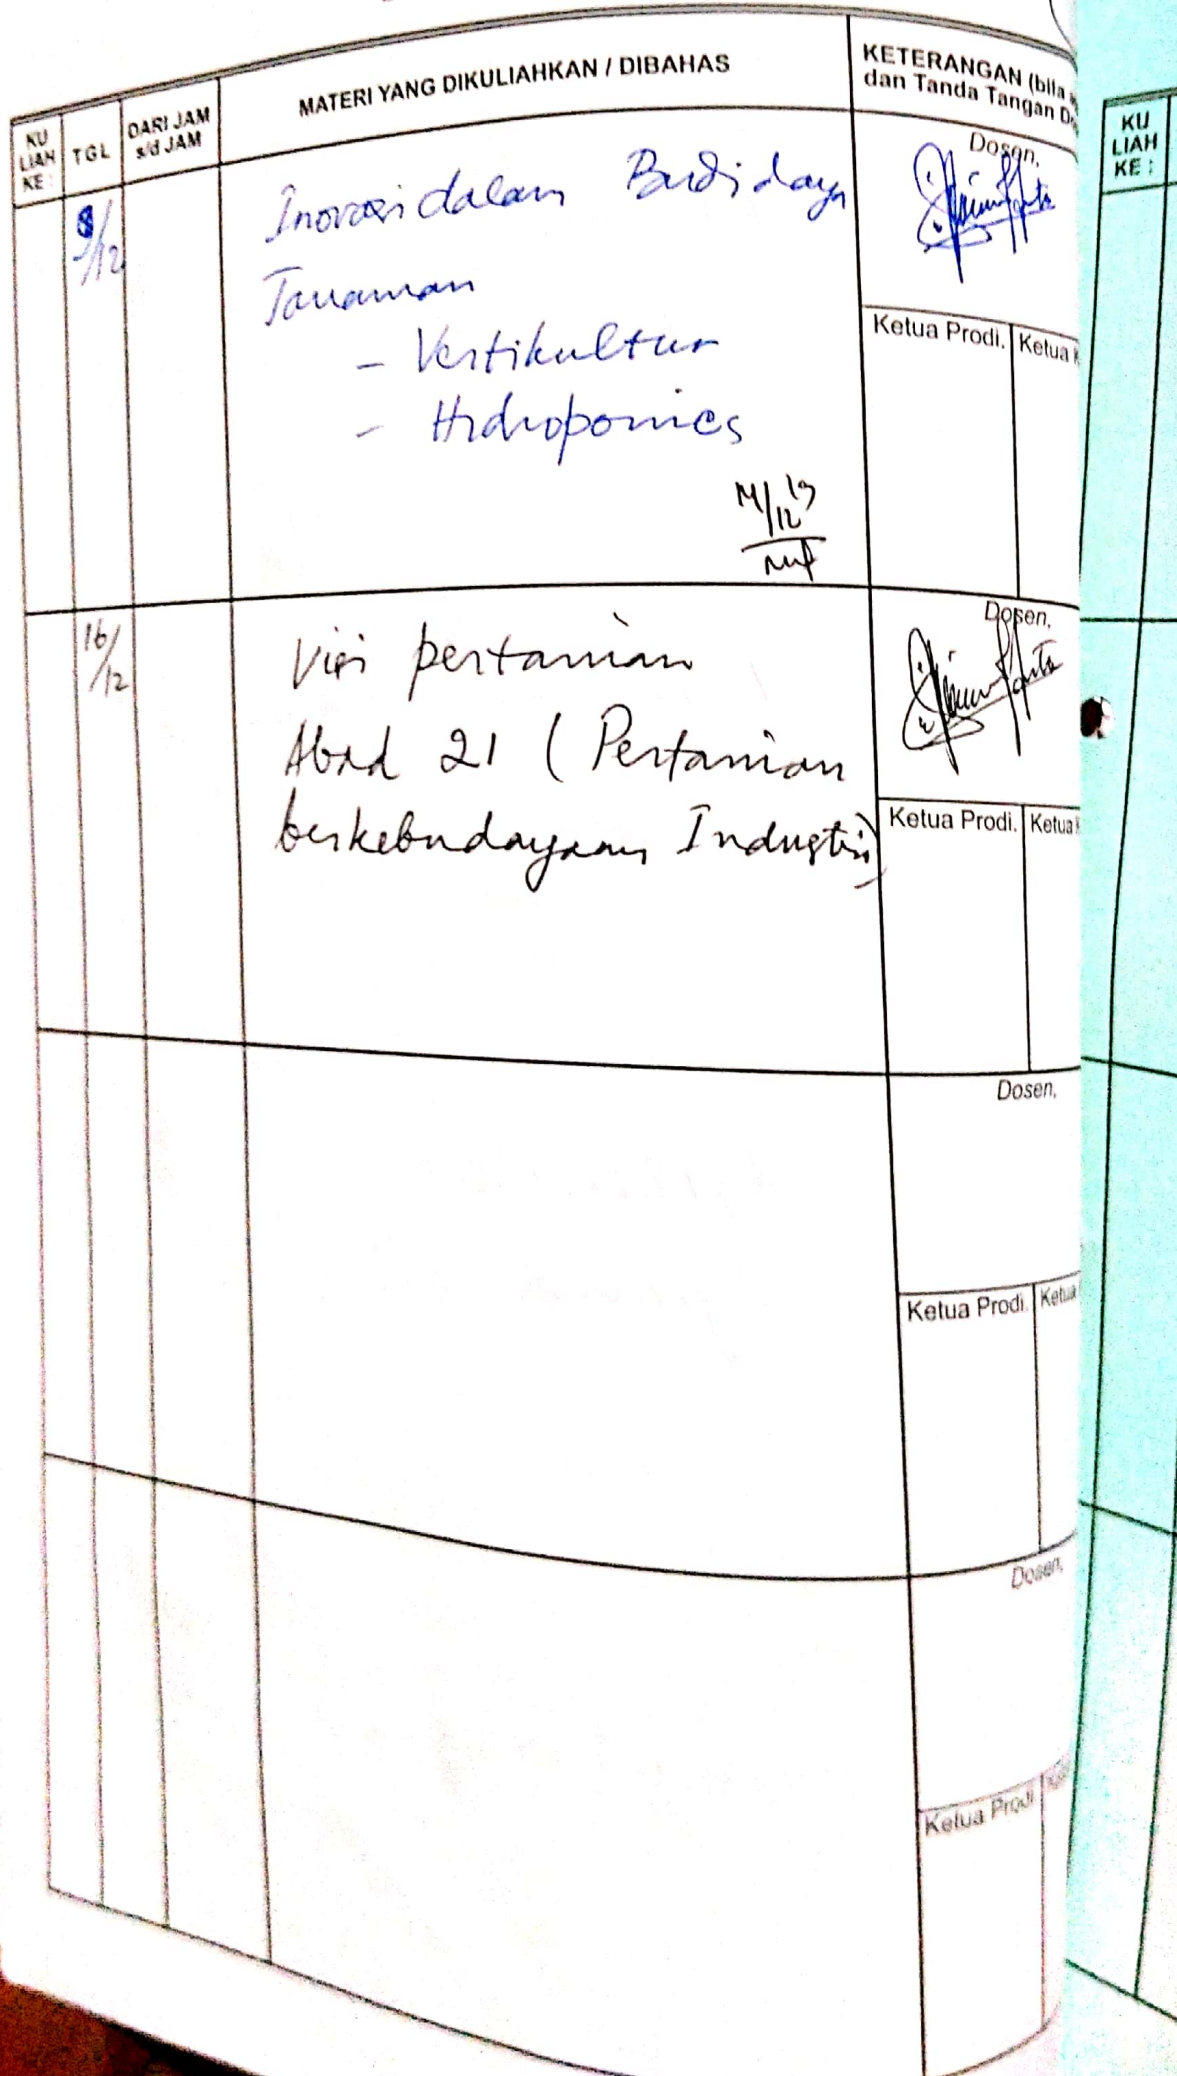 KU LIAH KE :
TGL
DARI JAM s/d JAM
MATERI YANG DIKULIAHKAN / DIBAHAS
KETERANGAN (bila
dan Tanda Tangan
/12
Inovasi dalam Budidaya
Tanaman
- Vertikultur
- Hidroponics
Dosen,
Ketua Prodi.
Ketua
16/12
Visi pertanian
Abad 21 (Pertanian
berkebudayaan Industri)
Dosen,
Ketua Prodi.
Ketua
Dosen,
Ketua Prodi.
Ketua
Dosen,
Ketua Prodi
KU
LIAH
KE :